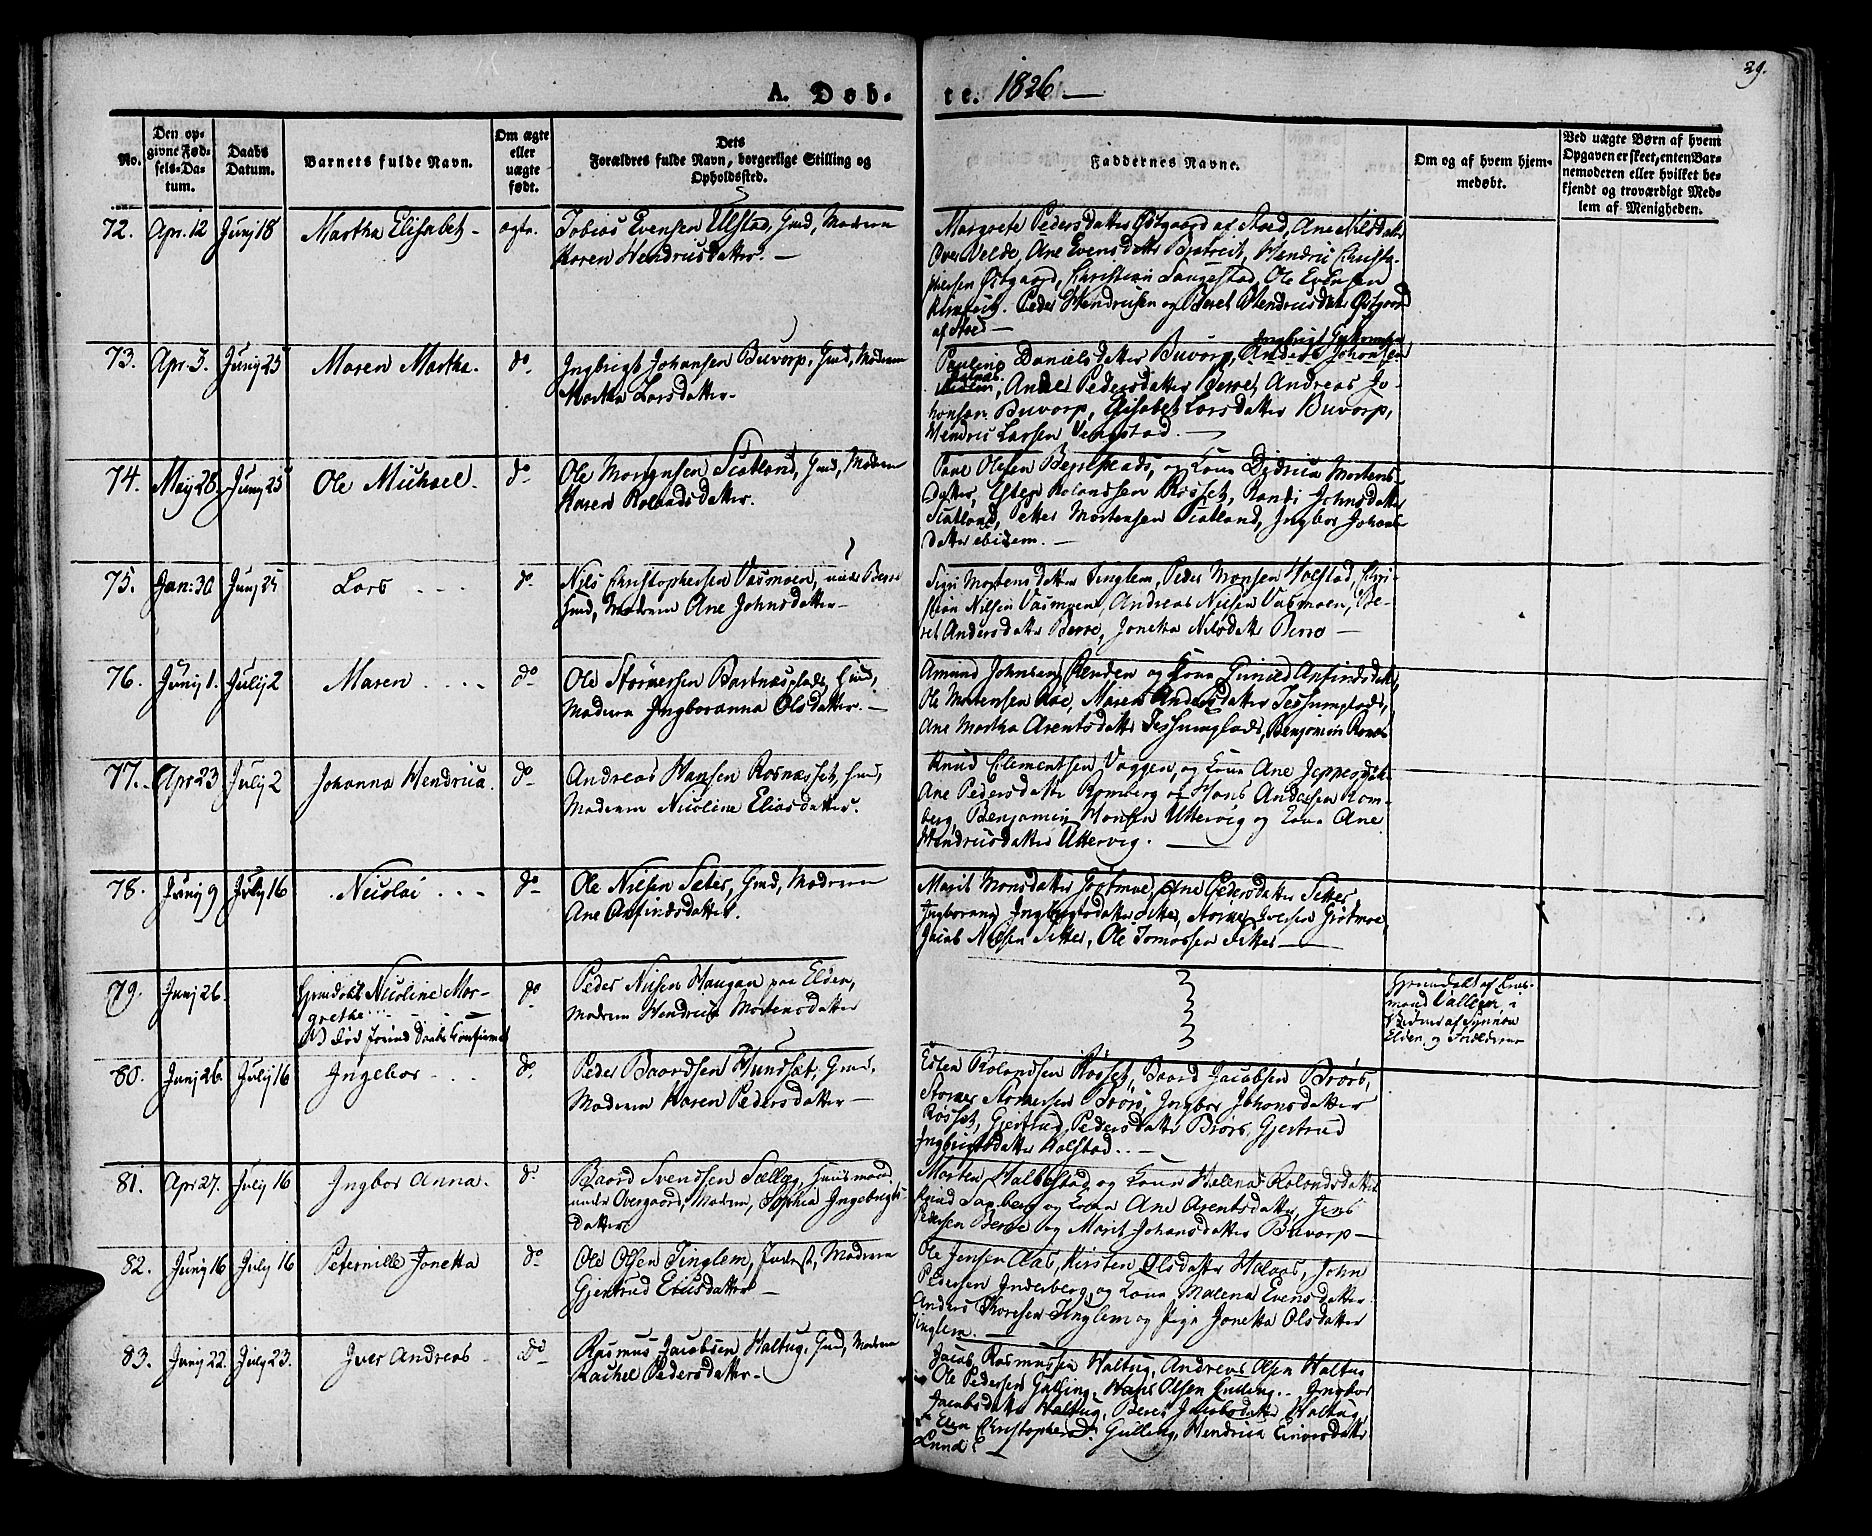 29.
A. Døb-te. 1826
No.
Den op-
givne Fød-
sels-Da-
tum.
Daabs
Datum.
Barnets fulde Navn.
Om ægte
eller
uægte
født.
Dets
Forældres fulde Navn, borgerlige Stilling og
Opholdssted.
Faddernes Navne.
Om og af hvem hjem-
medøbt.
Ved uægte Børn af hvem
Opgaven er skeet, enten Bar-
nemoderen eller hvilket be-
kjendt og troværdigt Med-
lem af Menigheden.
72. Apr. 12 Junj 18 Martha Elisabet - ægte.
Tobias Evensen Ulstad, Gmd, Moderen
Karen Hendrusdatter. -
Margrete Pedersdatter Østgaard af Stod, Ane Nilsdatter
Over Velde, Ane Evensdatter, Hendric Christo-
phersen Østgaard, Christian Langestad, Ole Evensen
Peder Hendrusen og Beret Hendrusdatter Østgaard
af Stod -
73. Apr. 3. Junj 25 Maren Martha. do
Ingbrigt Johansen Buvarp, Gmd, Moderen
Martha Larsdatter -
Pauline Danielsdatter Buvarp, Anders Johansen
Ane Pedersdatter Berret, Andreas Jo-
hansen Buvarp, Elisabet Larsdatter Buvarp,
Hendric Larsen Vengstad. -
74. Maij 28. Junj 25 Ole Michael. do
Ole Mortensen Scatland, Gmd, Moderen
Karen Rolandsdatter.
Paul Olsen, og Kona Didrica Mortens-
datter, Esten Rolandssen Røsset, Randi Johnsdatter
Scatland, Petter Mortensen Scatland, Ingbor Johans-
datter ibidem. -
75. Jan: 30 Junj 25 Lars - - - do
Nils Christophersen Vasmoen, under Berre
Gmd, Moderen Ane Johnsdatter -
Siri Mortensdatter Tinglem, Peder Monsen Holstad, Chri-
stian Nilsen Vasmoen, Andreas Nilsen Vasmoen, Be-
ret Andersdatter Berre, Jonetta Nilsdatter Berre -
76. Junij 1. Julij 2 Maren . . . . do
Ole Størkersen Bartnæsplads, Gmd,
Moderen Ingboranna Olsdatter. -
Amund Johnsen Elenden og Kona Gunild Anfindsdatter,
Ole Mortensen Aae, Maren Andersdatter,
Ane Martha Arentsdatter, Benjamin
77. Apr 23 Julij 2 Johanna Hendrica. do
Andreas Hansen Rosnæsset, Gmd,
Moderen Nicoline Eliasdatter.
Knud Clementsen Vaggen, og Kona Ane Jeppesdatter
Ane Pedersdatter Romberg og Hans Andersen Rom-
berg, Benjamin Hansen Uttervig og Kona Ane
Hendrusdatter Uttervig. -
78. Junij 9 Julij 16 Nicolai . . - do
Ole Nilsen Sæter, Gmd, Moderen
Ane Anfindsdatter.
Marit Monsdatter Grøtmoe, Ane Pedersdatter Setter
Ingborana Ingbrigtsdatter Setter, Størker Iversen Grøtmoe
Jacob Nilsen Setter, Ole Tomassen Setter -
79. Junj 26.
Hjemdøbt Nicoline Mar-
grethe - - -
Død forind Daabs Confirmat
do
Peder Nilsen Haugan paa Elden,
Moderen Hendrica Mortensdatter
Hjemmedøbt af
mand Valleen i
Elden og
80. Junj 26. Julij 16 Ingebor - - - do
Peder Baardsen Hundsæt, Gmd,
Moderen Karen Pedersdatter -
Esten Rolandsen Røsset, Baard Jacobsen Brørs,
Størker Størkersen Brørs, Ingbor Johansdatter
Røsset, Gjertrud Pedersdatter Brørs, Gjertrud
Ingbrigtsdatter Holstad. . -
81. Apr 27. Julij 16 Ingbor Anna. do
Baard Svendsen Sælleg, Huusmand
under Overgaard, Moderen, Sophia Ingebrigts-
datter
Morten Halbostad og Kona Helena Rolandsdatter
Knud Sagberg og Kona Ane Arentsdatter, Jens
Pedersen Berre og Marit Johansdatter Buvarp -
82. Junj 16 Julij 16 Peternille Jonetta do
Ole Olsen Tinglem, Inderst, Moderen
Gjertrud Eliasdatter -
Ole Jensen Aas, Kirsten Olsdatter Halaas, John
Pedersen Inderberg, og Kona Malena Evensdatter.
Anders Thoresen Tinglem og Pige Jonetta Olsdatter
Tinglem. -
83. Junij 22. Julij 23. Iver Andreas - do
Rasmus Jacobsen Haltug, Gmd, Moderen
Rachel Pedersdatter -
Jacob Rasmussen Haltug, Andreas Olsen Haltug
Ole Pedersen Gulling, Hans Olsen Gulling. Ingbor
Jacobsdatter Haltug, Beret Jacobsdatter Haltug,
Elen Christophersd. Gulling, Hendrica Einersdatter
Lund -